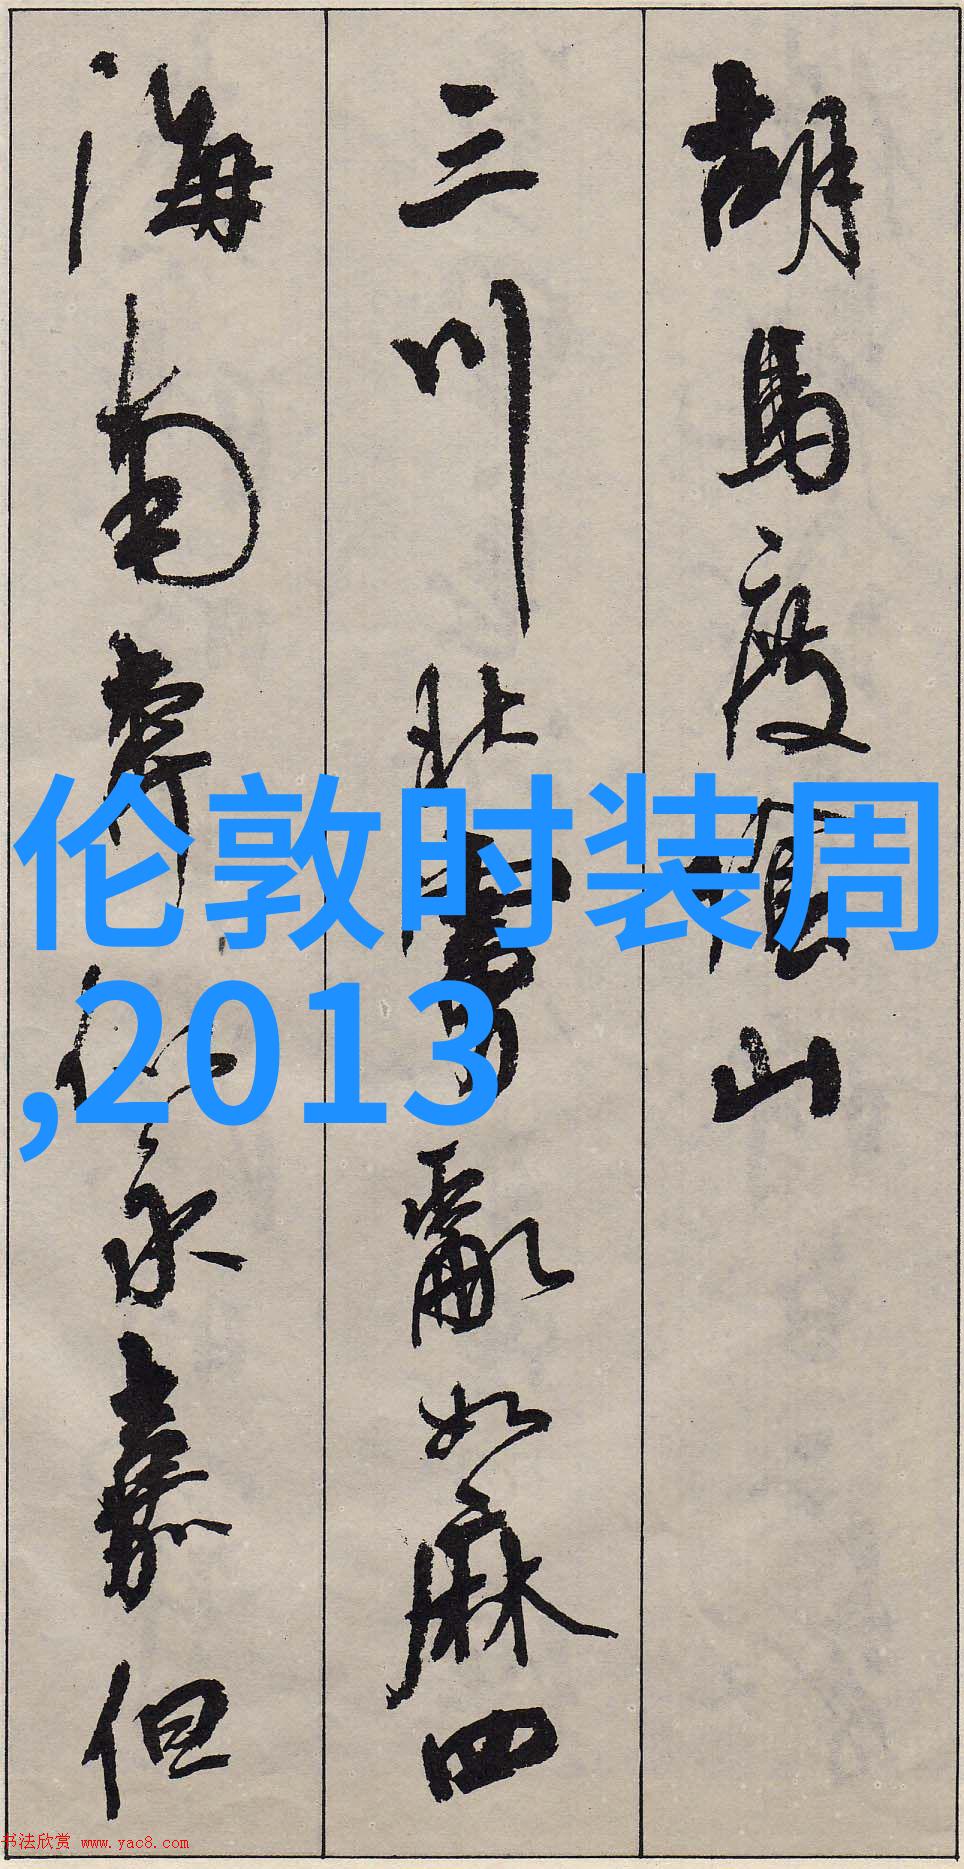 胡马度陰山
三川北虜亂如麻四
海南奔似永嘉但
伦敦时装周
,2013
书法欣赏 www.yac8.com